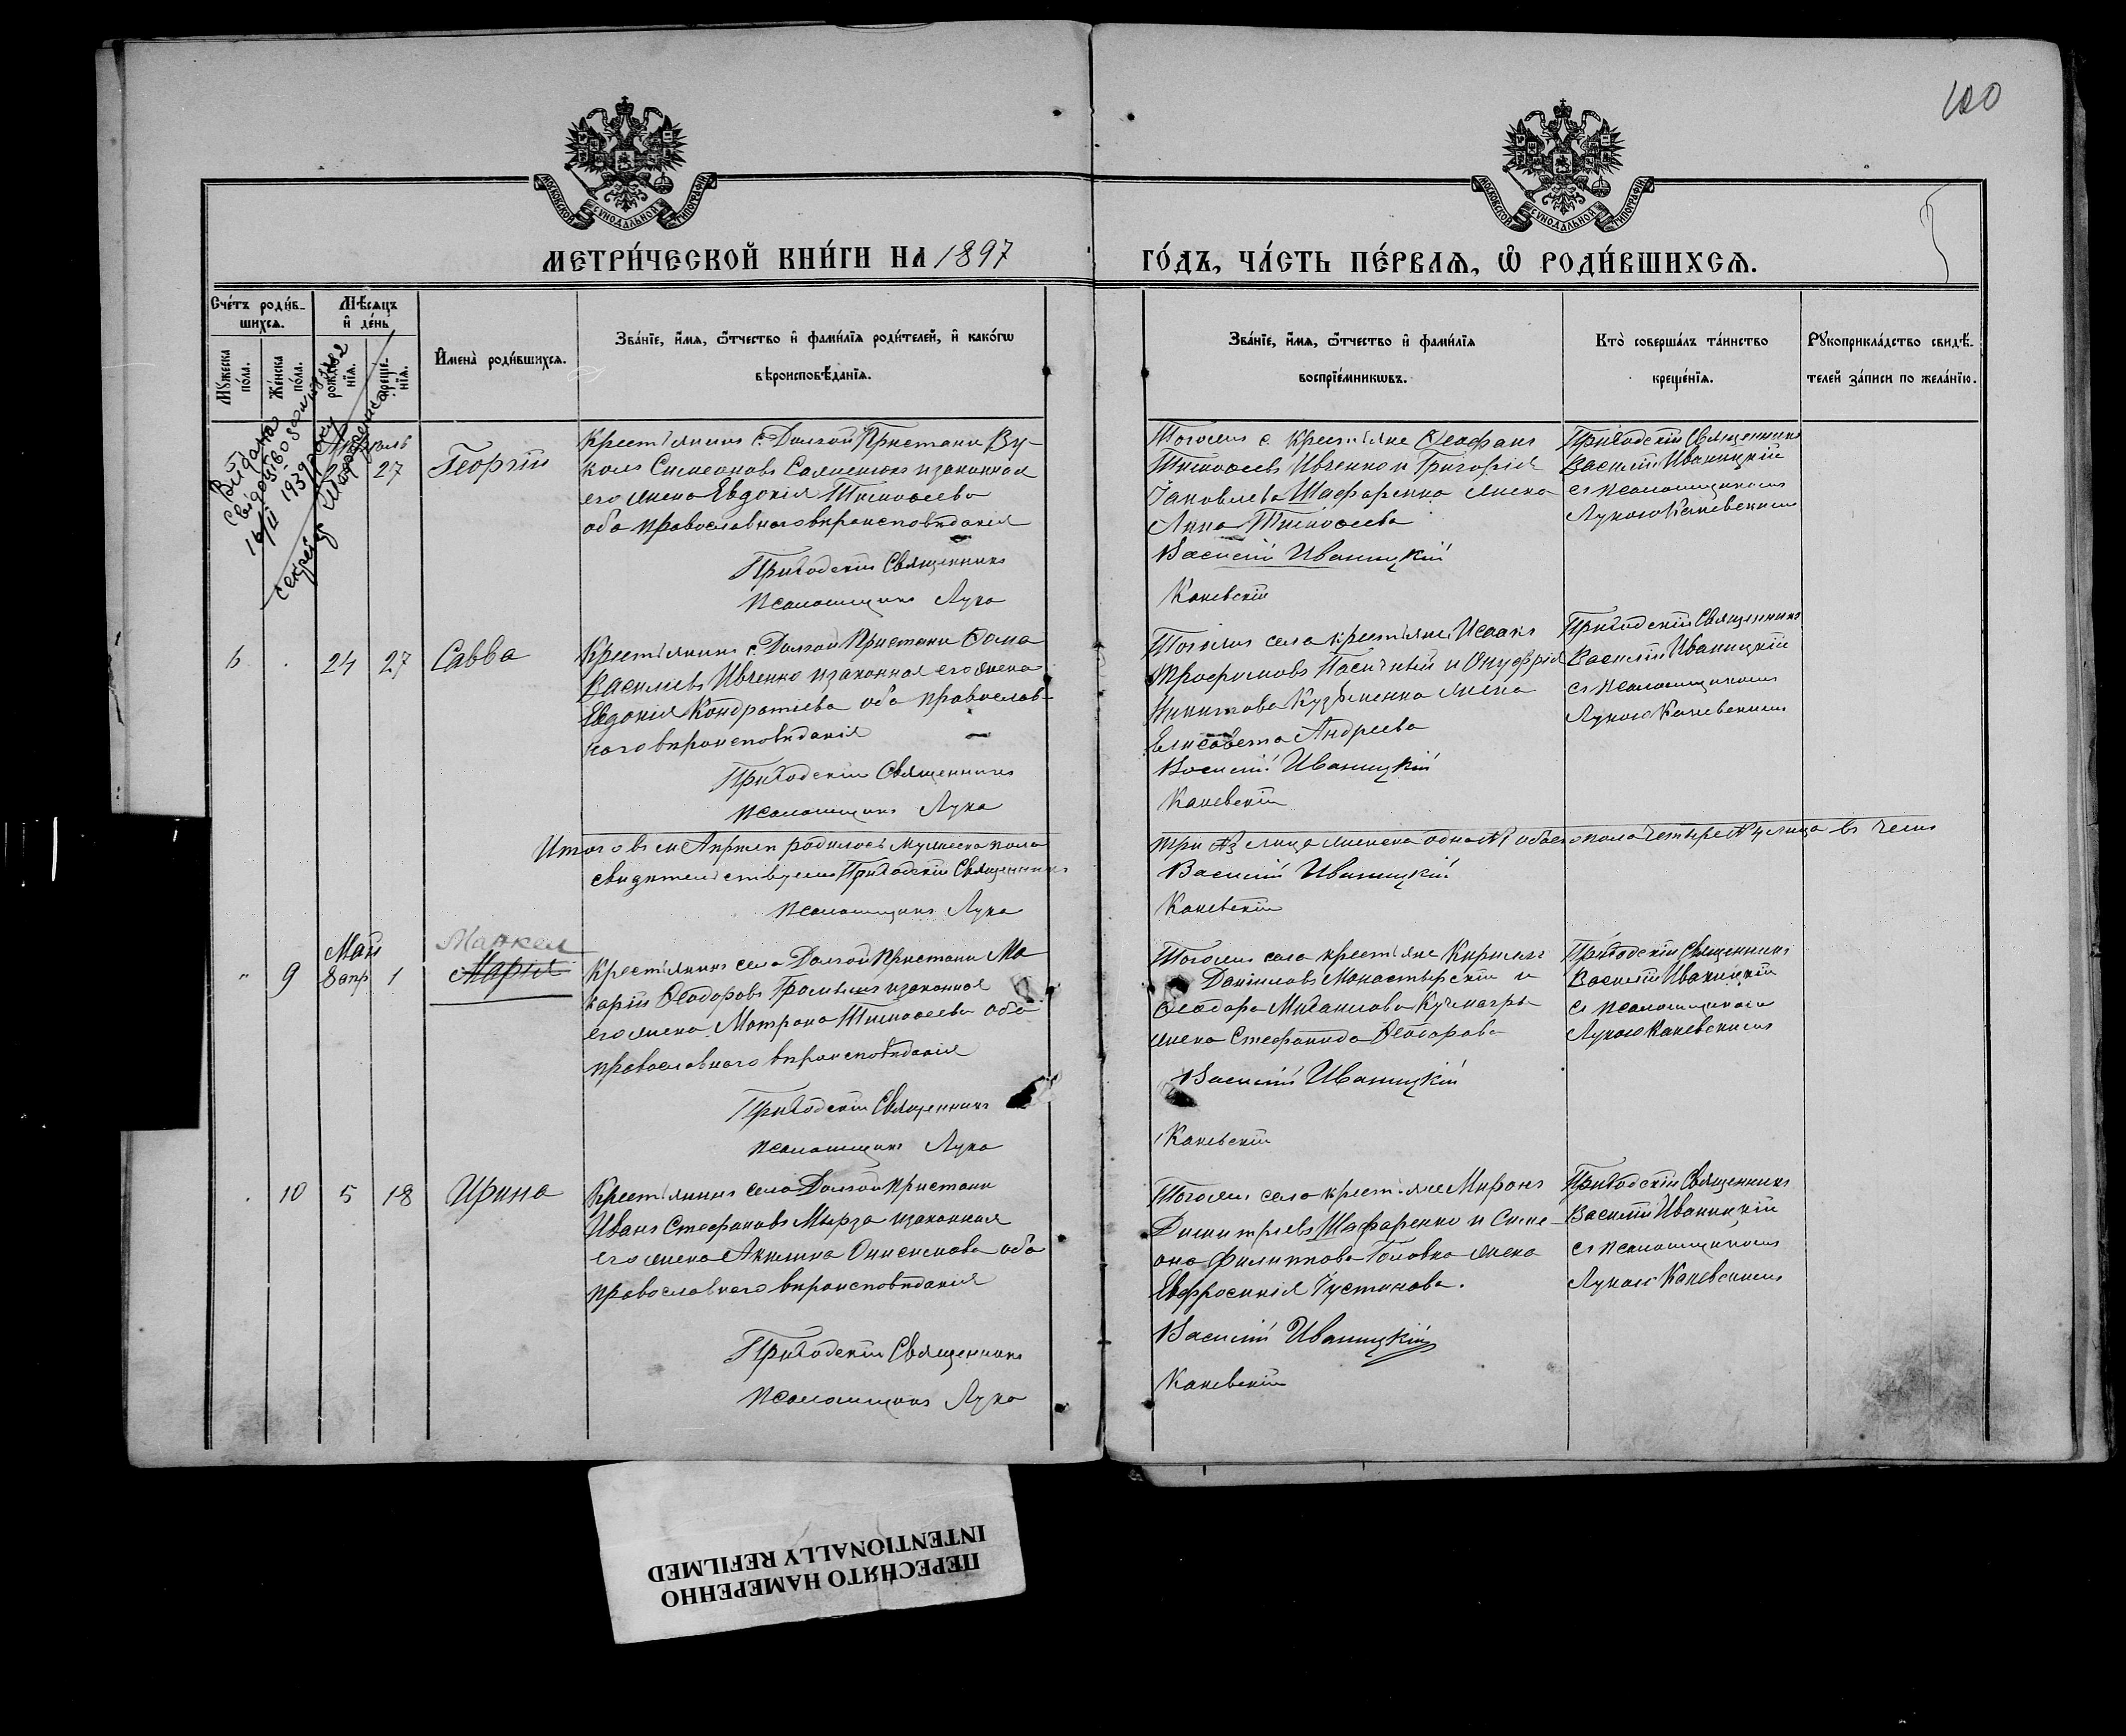 100
МОСКОВСКОЙ СУНОДАЛЬНОЙ ТИПОГРАФІИ
МОСКОВСКОЙ СУНОДАЛЬНОЙ ТИПОГРАФІИ
МЕТРИ́ЧЕСКОЙ КНИ́ГИ НА 1897
ГО́ДЪ, ЧА́СТЬ ПЕ́РВАѦ, Ѡ҆ РОДИ́ВШИХСѦ.
Сче́тъ роди́в-
шихсѧ.
Мѣ́сѧцъ
и҆ де́нь
Мꙋ́жеска по́ла.
Же́нска по́ла.
рожде́-
нїѧ.
креще́-
нїѧ.
И҆мена̀ роди́вшихсѧ.
Зва́нїе, и҆́мѧ, ѻ҆́тчество и҆ фами́лїѧ роди́телей, и҆ како́гѡ
вѣроисповѣ́данїѧ.
Зва́нїе, и҆́мѧ, ѻ҆́тчество и҆ фами́лїѧ
воспрїе́мникѡвъ.
Кто̀ соверша́лъ та́инство
креще́нїѧ.
Рꙋкоприкла́дство свидѣ́-
телей за́писи по жела́нїю.
Видана
16/II 1939 року
Апрѣль
27
Георгій
Крестьянинъ с. Долгой Пристани Ву-
колъ Симеоновъ и законная
его жена Евдокія Тимоѳеева
оба православнаго вѣроисповѣданія
Приходскій Священникъ
псаломщикъ Лука
Тогожъ с. крестьяне Ѳеофанъ
Тимоѳеевъ Ивченко и Григорія
Іаковлева Шафаренка жена
Анна Тимоѳеева
Василій Иваницкій
Каневскій
Приходскій Священникъ
Василій Иваницкій
съ псаломщикомъ
Лукою Каневскимъ
24 27 Савва
Крестьянинъ с. Долгой Пристани Ѳома
Василіевъ Ивченко и законная его жена
Евдокія Кондратіева оба православ-
наго вѣроисповѣданія
Приходскій Священникъ
псаломщикъ Лука
Тогожъ села крестьяне Исаакъ
Трофимовъ Пасічный и Онуфрія
Никитова Кузьменка жена
Елисавета Андреева
Василій Иваницкій
Каневскій
Приходскій Священникъ
Василій Иваницкій
съ псаломщикомъ
Лукою Каневскимъ
Итого въ м Апрѣлѣ родилось мужеска пола три №3 лица женска одна №1 обоего пола четыре №4 лица въ чемъ
свидѣтельствуемъ Приходскій Священникъ Василій Иваницкій
псаломщикъ Лука Каневскій
Май
" 9 8 апр 1
Маркел
Марія
Крестьянинъ села Долгой Пристани Ма-
карій Ѳеодоровъ и законная
его жена Матрона Тимоѳеева оба
православнаго вѣроисповѣданія
Приходскій Священникъ
псаломщикъ Лука
Тогожъ села крестьяне Кириллъ
Даніиловъ Монастырскій и
Ѳеодора Михаилова Кучмагры
жена Стефанида Ѳеодорова
Василій Иваницкій
Каневскій
Приходскій Священникъ
Василій Иваницкій
съ псаломщикомъ
Лукою Каневскимъ
10 5 18 Ирина
Крестьянинъ села Долгой Пристани
Иванъ Стефановъ Мырза и законная
его жена Акилина Онисимова оба
православнаго вѣроисповѣданія
Приходскій Священникъ
псаломщикъ Лука
Тогожъ села крестьяне Миронъ
Димитріевъ Шафаренко и Симе-
она Филиппова Головка жена
Евфросинія Іустинова.
Василій Иваницкій
Каневскій
Приходскій Священникъ
Василій Иваницкій
съ псаломщикомъ
Лукою Каневскимъ
ПЕРЕСНЯТО НАМЕРЕННО
INTENTIONALLY REFILMED